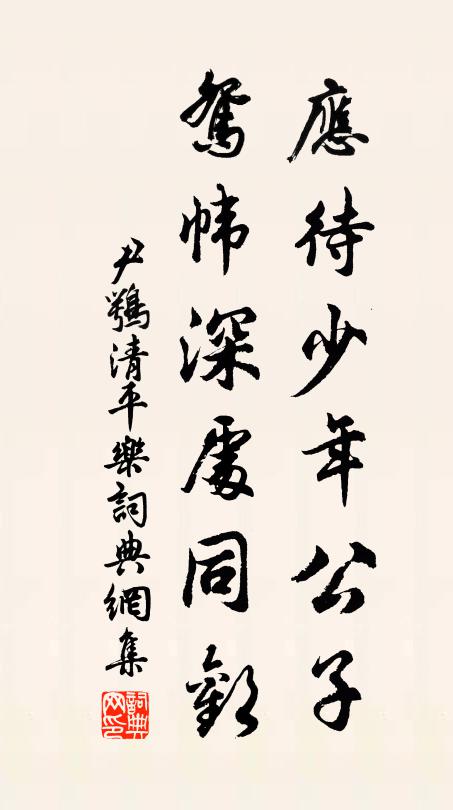 應待少年公子
鴛幃深處同歡
尹鶚清平樂詞典網集
詞典网印